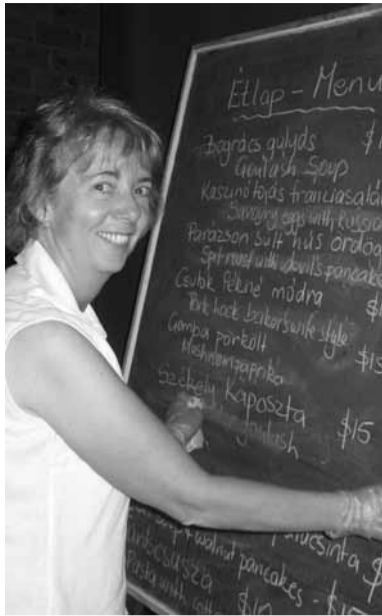 Étlap - Menu
Bogrács gulyás $1
Goulash Soup
Kaszinó tojás franciasalá
Savoury eggs with Russia
Parazson sült hús ördög
Spit roast with devil's pancake
Csülök Pékné módra $
Pork hock baker's wife style
Gomba pörkölt $15
Mushroom paprika
Székely Kaposzta $15
goulash
palacsinta $
walnut pancakes - $
$10
Pasta with